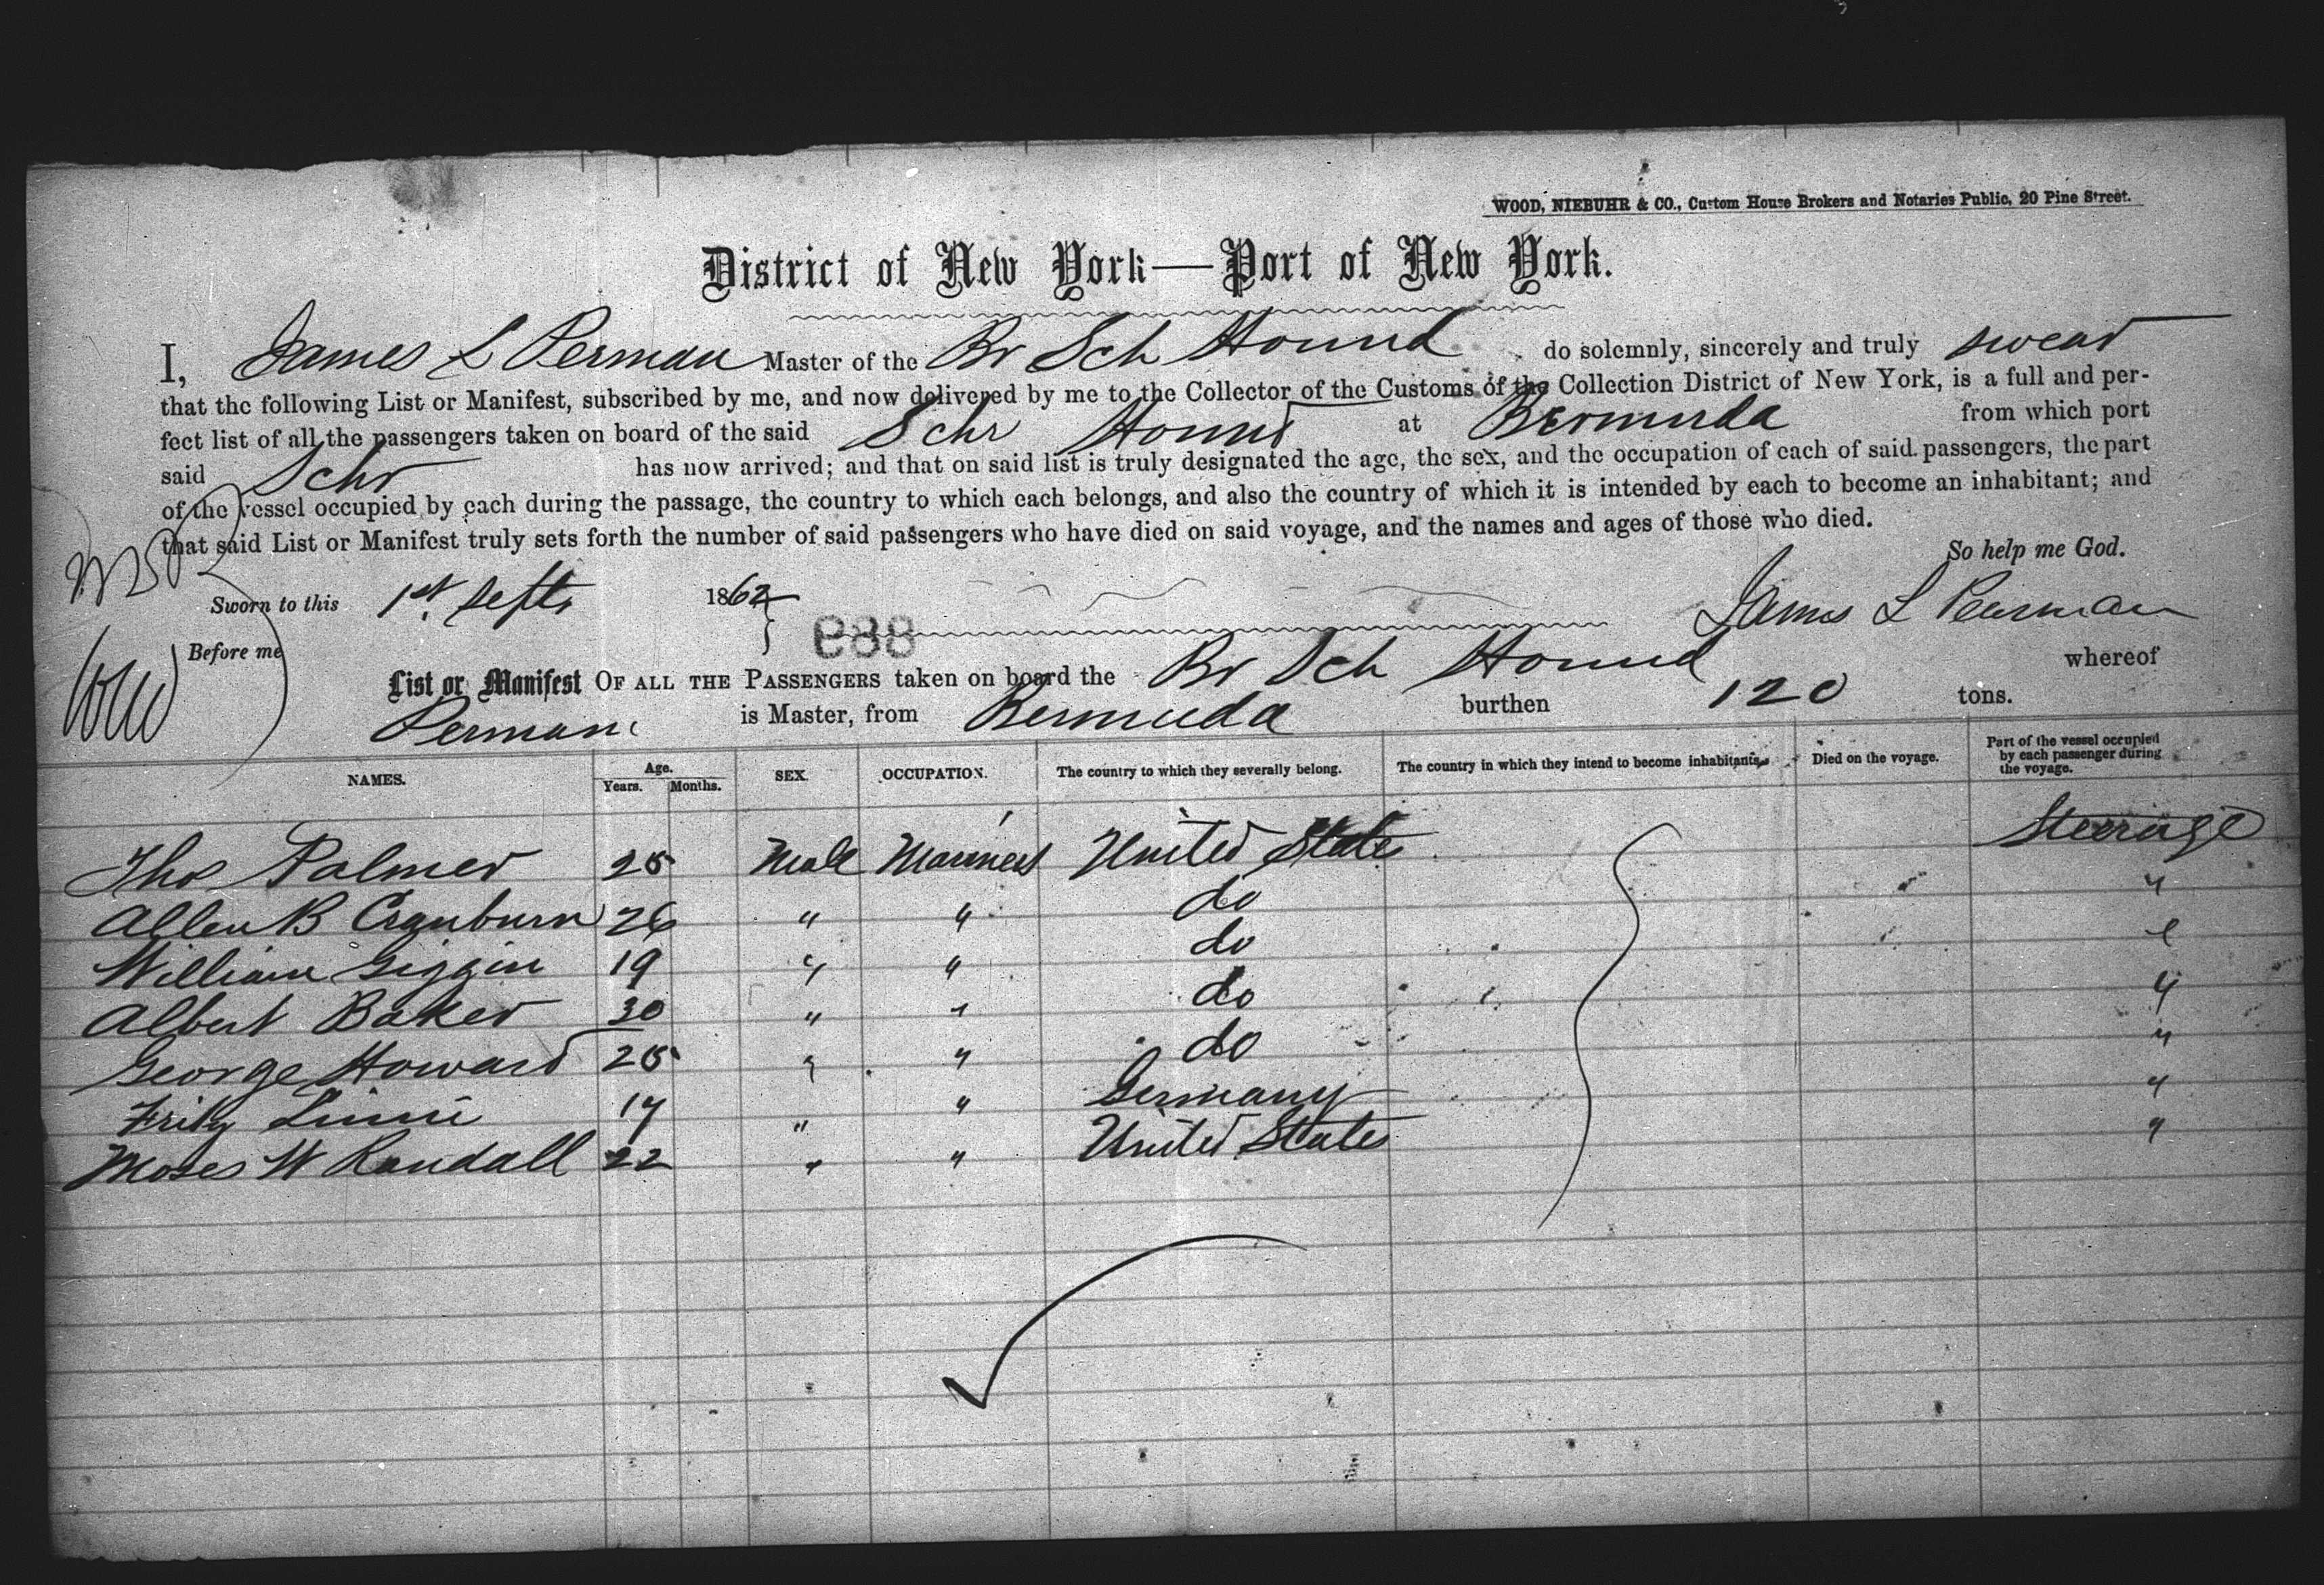 WOOD, NIEBUHR & CO., Custom House Brokers and Notaries Public, 20 Pine Street.
District of New York—Port of New York.
I, James L Perman Master of the Br Sch Hound do solemnly, sincerely and truly swear
that the following List or Manifest, subscribed by me, and now delivered by me to the Collector of the Customs of the Collection District of New York, is a full and per-
fect list of all the passengers taken on board of the said Schr Hound at Bermuda from which port
said Schr has now arrived; and that on said list is truly designated the age, the sex, and the occupation of each of said passengers, the part
of the vessel occupied by each during the passage, the country to which each belongs, and also the country of which it is intended by each to become an inhabitant; and
that said List or Manifest truly sets forth the number of said passengers who have died on said voyage, and the names and ages of those who died.
So help me God.
Sworn to this 1st Septr 1862
James L Pearman
Before me
888
List or Manifest OF ALL THE PASSENGERS taken on board the Br Sch Hound whereof
Perman is Master, from Bermuda burthen 120 tons.
NAMES. Age. Years. Months. SEX. OCCUPATION. The country to which they severally belong. The country in which they intend to become inhabitants. Died on the voyage. Part of the vessel occupied by each passenger during the voyage.
Thos Palmer 25 Male Mariners United States Steerage
Allen B Cranburn 26 " " do "
William Giggin 19 " " do "
Albert Baker 30 " " do "
George Howard 25 " " do "
Fritz 17 " " Germany "
Moses W Randall 22 " " United States "